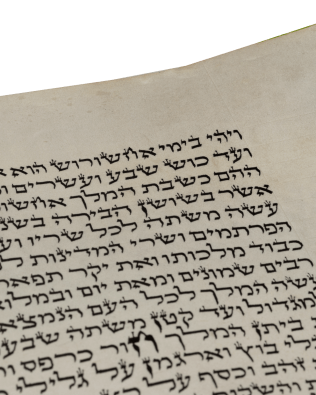 ויהי בימי אחשורוש הוא
ועד כוש שבע ועשרים
ההם כשבת המלך
אשר בשושן הבירה
עשה משתה לכל שריו
הפרתמים ושרי המדינות
כבוד מלכותו ואת יקר
רבים שמונים ומאת יום
המלך לכל העם
ועד קטן משתה
ביתן המלך חור כרפס
בוץ וארגמן על גלילי
זהב וכסף על